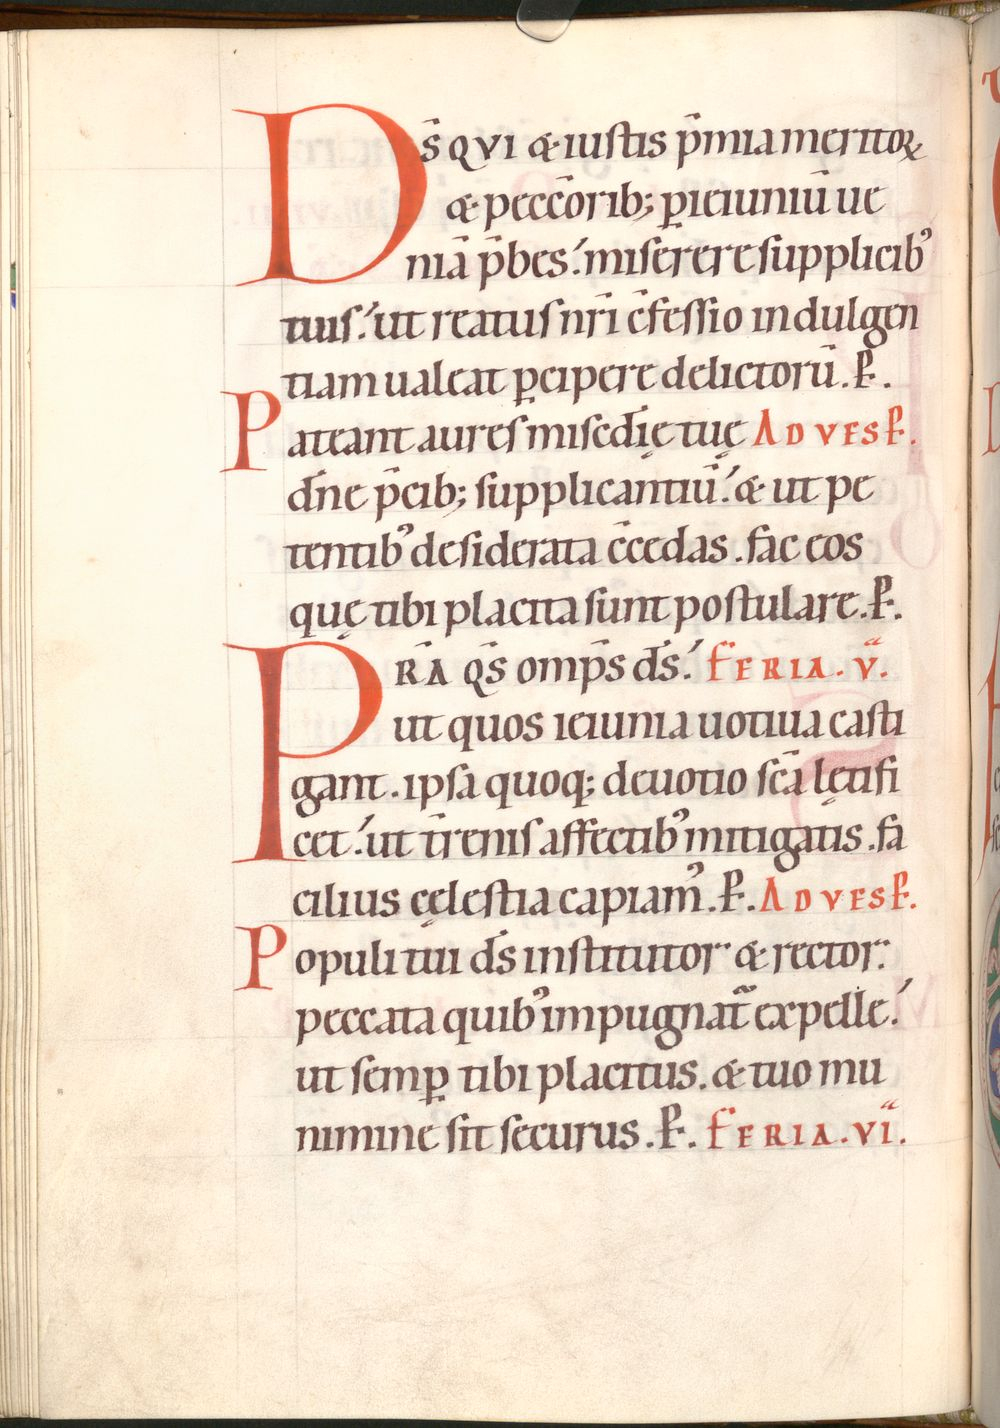 D̄S QVI & iustis p̄mia meritoꝝ
& peccōrib; ꝑ ieiuniū ue
niā p̄bes! miserere supplicibꝰ
tuis! ut reatus nr̄i c̄fessio indulgen
tiam ualeat ꝑcipere delictorū. P̵.
Pateant aures misc̄dię tuę AD VESP̵.
dn̄e p̄cib; supplicantiū! & ut pe
tentibꝰ desiderata c̄cedas. fac eos
quę tibi placita sunt postulare. P̵.
PRA̅ QS̅ omp̅s ds̅! FERIA. v̄.
ut quos ieiunia uotiua casti
gant. ipsa quoq; deuotio sc̄a lętifi
cet! ut tr̄enis affectibꝰ mitigatis. fa
cilius cęlestia capiamꝰ. P̵. AD VESP̵.
Populi tui ds̅ institutor & rector.
peccata quibꝰ impugnat̄ expelle!
ut semꝑ tibi placitus. & tuo mu
nimine sit securus. P̵. FERIA. VI.